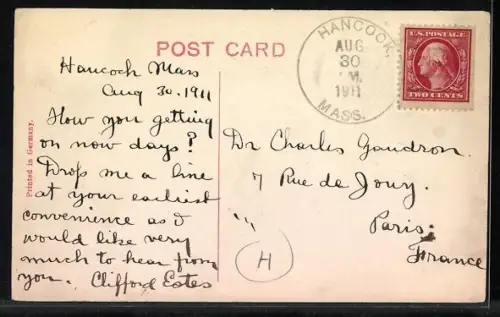 POST CARD
HANCOCK,
AUG
30
M.
1911
MASS.
U.S. POSTAGE
TWO CENTS
Printed in Germany.
Hancock Mass
Aug 30, 1911
How you getting
on now days?
Drop me a line
at your earliest
convenience as I
would like very
much to hear from
you. Clifford Estes
Dr Charles Gaudron.
7 Rue de Jouy.
" "
Paris.
France
H